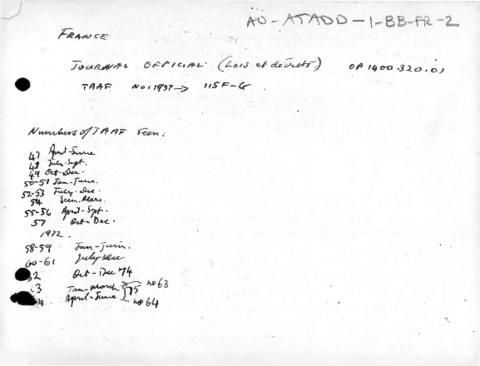 AO-ATADD-1-BB-FR-2
FRANCE
JOURNAL OFFICIAL (Lois et décrets) OP 1400.320.01
TAAF No 1 1957→ 115 F-G
Numbers of TAAF seen:
47 April-June
48 July-Sept.
49 Oct-Dec.
50-51 Jan-June.
52-53 July-Dec.
54 Jan-Mars.
55-56 April-Sept.
57 Oct-Dec.
1972.
58-59 Jan-Juin.
60-61 July-Dec
62 Oct-Dec '74
63 Jan-March } 75 no 63
64 April-June no 64